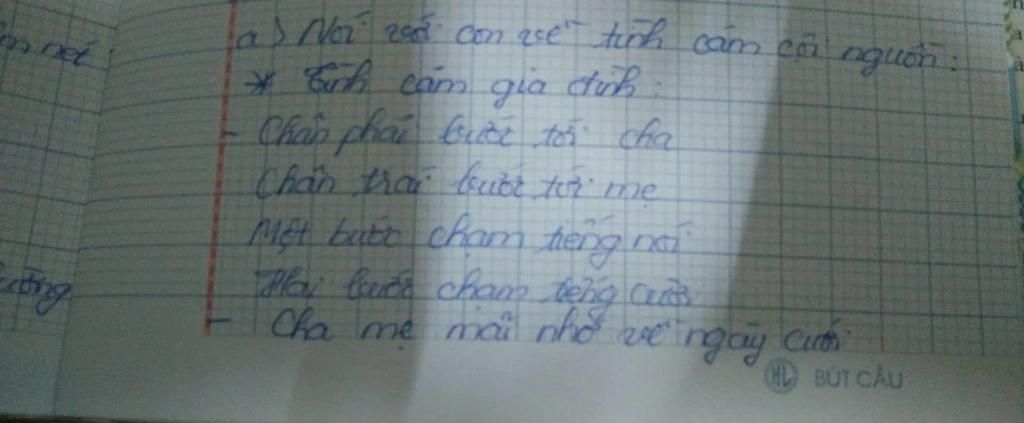 ên nét
a) Nói với con về tình cảm cội nguồn:
* Tình cảm gia đình:
- Chân phải bước tới cha
Chân trái bước tới mẹ
Một bước chạm tiếng nói
Hai bước chạm tiếng cười
- Cha mẹ mãi nhớ về ngày cưới
HL BÚT CÂU